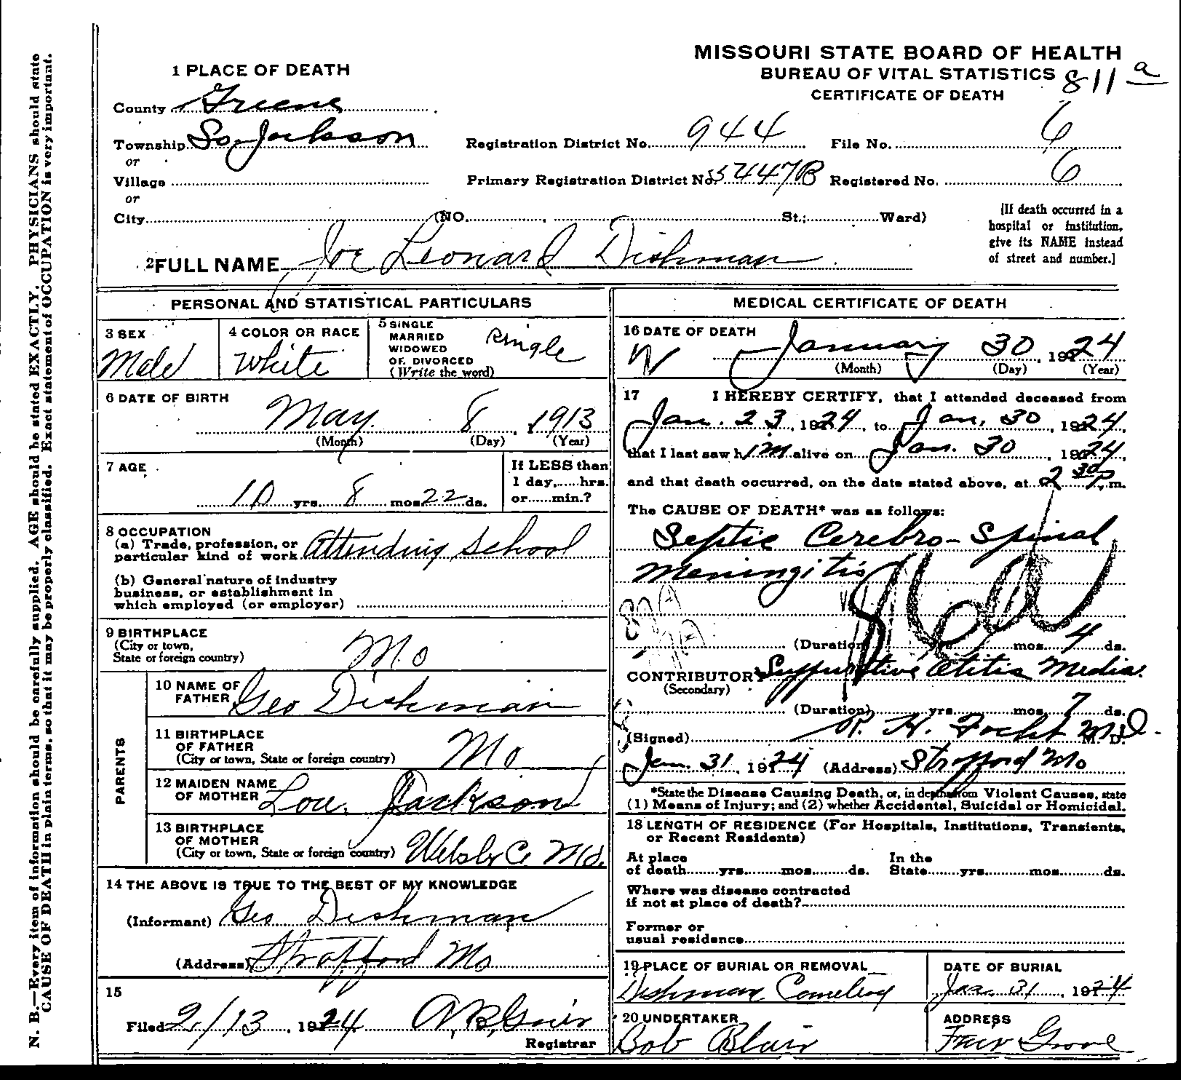 MISSOURI STATE BOARD OF HEALTH
BUREAU OF VITAL STATISTICS 811a
CERTIFICATE OF DEATH
1 PLACE OF DEATH
County Greene
Township So Jackson
or
Village
or
City (NO. , St.; Ward)
Registration District No. 944 File No. 6
Primary Registration District No. 5447B Registered No. 6
[If death occurred in a
hospital or institution,
give its NAME instead
of street and number.]
2 FULL NAME Joe Leonard Dishman
PERSONAL AND STATISTICAL PARTICULARS
3 SEX
Male
4 COLOR OR RACE
White
5 SINGLE
MARRIED
WIDOWED
OR DIVORCED
(Write the word)
single
6 DATE OF BIRTH
May 8, 1913
(Month) (Day) (Year)
7 AGE
10 yrs. 8 mos. 22 ds.
If LESS than
1 day,.....hrs.
or.....min.?
8 OCCUPATION
(a) Trade, profession, or
particular kind of work Attending School
(b) General nature of industry
business, or establishment in
which employed (or employer)
9 BIRTHPLACE
(City or town,
State or foreign country)
Mo
PARENTS
10 NAME OF
FATHER Geo Dishman
11 BIRTHPLACE
OF FATHER
(City or town, State or foreign country) Mo
12 MAIDEN NAME
OF MOTHER Lou. Jackson
13 BIRTHPLACE
OF MOTHER
(City or town, State or foreign country) Co Mo.
14 THE ABOVE IS TRUE TO THE BEST OF MY KNOWLEDGE
(Informant) Geo Dishman
(Address) Strafford Mo
15
Filed 2/13, 1924
Registrar
MEDICAL CERTIFICATE OF DEATH
16 DATE OF DEATH
January 30, 1924
(Month) (Day) (Year)
17 I HEREBY CERTIFY, that I attended deceased from
Jan. 23, 1924, to Jan, 30, 1924
that I last saw him alive on Jan. 30, 1924
and that death occurred, on the date stated above, at 2 30 P. m.
The CAUSE OF DEATH* was as follows:
Septic Cerebro-Spinal
Meningitis
(Duration) yrs. mos. 4 ds.
CONTRIBUTORY Suppurative Otitis Media.
(Secondary)
(Duration) yrs. mos. 7 ds.
(Signed) R. H. M. D.
Jan. 31, 1924 (Address) Strafford Mo
*State the Disease Causing Death, or, in deaths from Violent Causes, state
(1) Means of Injury; and (2) whether Accidental, Suicidal or Homicidal.
18 LENGTH OF RESIDENCE (For Hospitals, Institutions, Transients,
or Recent Residents)
At place
of death.....yrs.....mos.....ds.
In the
State.....yrs.....mos.....ds.
Where was disease contracted
if not at place of death?
Former or
usual residence
19 PLACE OF BURIAL OR REMOVAL
Dishman Cemetery
DATE OF BURIAL
Jan. 31, 1924
20 UNDERTAKER
Bob Blair
ADDRESS
Fair Grove
N. B.—Every item of information should be carefully supplied. AGE should be stated EXACTLY. PHYSICIANS should state
CAUSE OF DEATH in plain terms, so that it may be properly classified. Exact statement of OCCUPATION is very important.